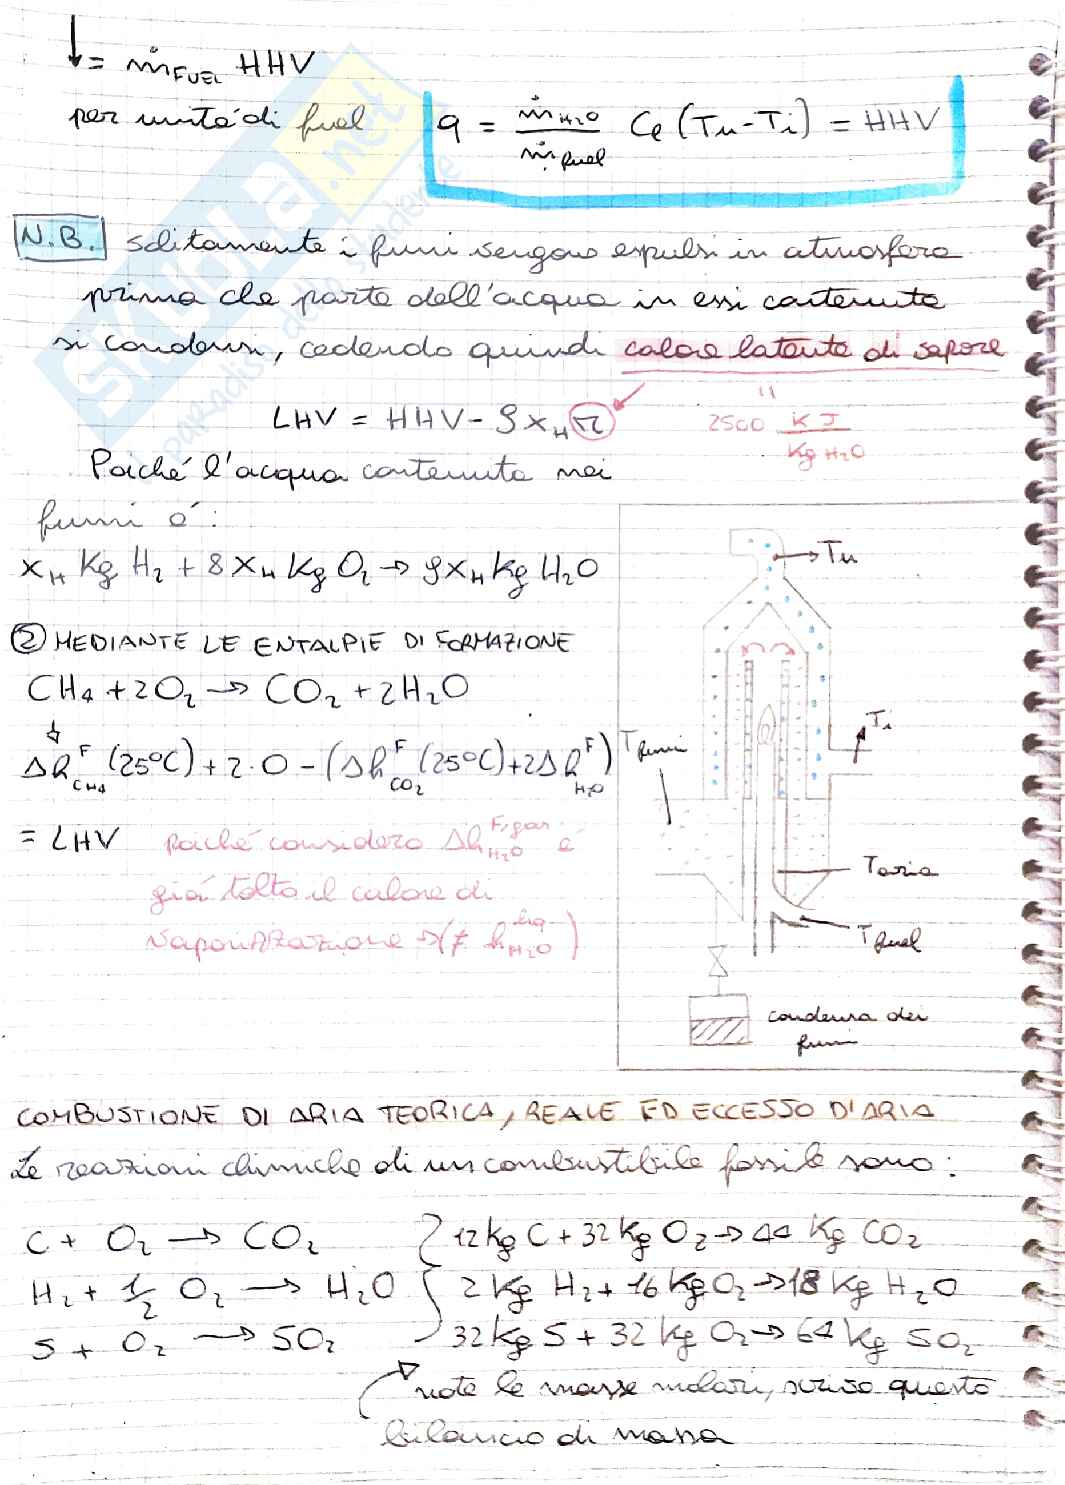 ↓ = ṁFUEL HHV
per unità di fuel
q = ṁH₂O / ṁfuel Cₑ (Tu - Ti) = HHV
N.B. solitamente i fumi vengono espulsi in atmosfera
prima che parte dell'acqua in essi contenuta
si condensi, cedendo quindi calore latente di vapore
LHV = HHV - 9 xH r
2500 KJ / Kg H₂O
Poiché l'acqua contenuta nei
fumi è:
xH Kg H₂ + 8 xH Kg O₂ → 9xH Kg H₂O
② MEDIANTE LE ENTALPIE DI FORMAZIONE
CH₄ + 2O₂ → CO₂ + 2H₂O
Δh^F CH₄ (25°C) + 2·0 - (Δh^F CO₂ (25°C) + 2Δh^F H₂O)
= LHV poiché considero Δh^F,gas H₂O è
già tolto il calore di
vaporizzazione → (≠ h^liq H₂O)
Tu
Ti
T fumi
T aria
T fuel
condensa dei
fumi
COMBUSTIONE DI ARIA TEORICA, REALE ED ECCESSO D'ARIA
Le reazioni chimiche di un combustibile fossile sono:
C + O₂ → CO₂ { 12 kg C + 32 kg O₂ → 44 Kg CO₂
H₂ + 1/2 O₂ → H₂O { 2 Kg H₂ + 16 Kg O₂ → 18 Kg H₂O
S + O₂ → SO₂ 32 kg S + 32 kg O₂ → 64 Kg SO₂
note le masse molari, scrivo questo
bilancio di massa
SKUOLA.net
paradiso dello studente